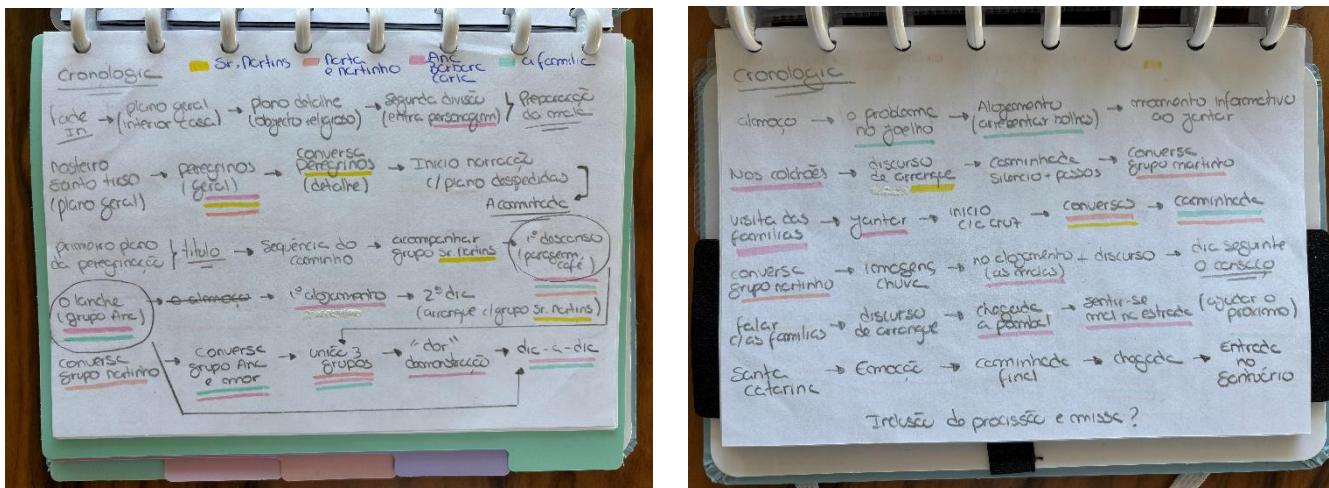 Cronologia
Sr. Martins
Marta e Martinho
Ana Bárbara Carla
a família
Fade In → plano geral (interior casa) → plano detalhe (objecto religioso) → segunda divisão (entra personagem) } Preparação da mala
Mosteiro Santo Tirso (plano geral) → peregrinos (geral) → conversa peregrinos (detalhe) → Início narração c/ plano despedidas
A caminhada
primeiro plano da peregrinação } título → Sequência do caminho → acompanhar grupo Sr. Martins → 1º descanso (paragem café)
O lanche (grupo Ana) → o almoço → 1º alojamento → 2º dia (arranque c/ grupo Sr. Martins)
conversa grupo Martinho → conversa grupo Ana e amor → união 3 grupos → "dor" demonstração → dia-a-dia
Cronologia
almoço → o problema no joelho → Alojamento (arrebentar bolhas) → momento informativo ao jantar
Nos colchões → discurso de arranque → caminhada silêncio + passos → conversa grupo martinho
visita das famílias → jantar → início c/ a cruz → conversas → caminhada
conversa grupo martinho → imagens chuva → no alojamento + discurso (as meias) → dia seguinte o cansaço
falar c/ as famílias → discurso de arranque → chegada a pombal → sentir-se mal na estrada (ajudar o próximo)
Santa Catarina → Emoção → caminhada final → chegada → Entrada no Santuário
Inclusão da procissão e missa?